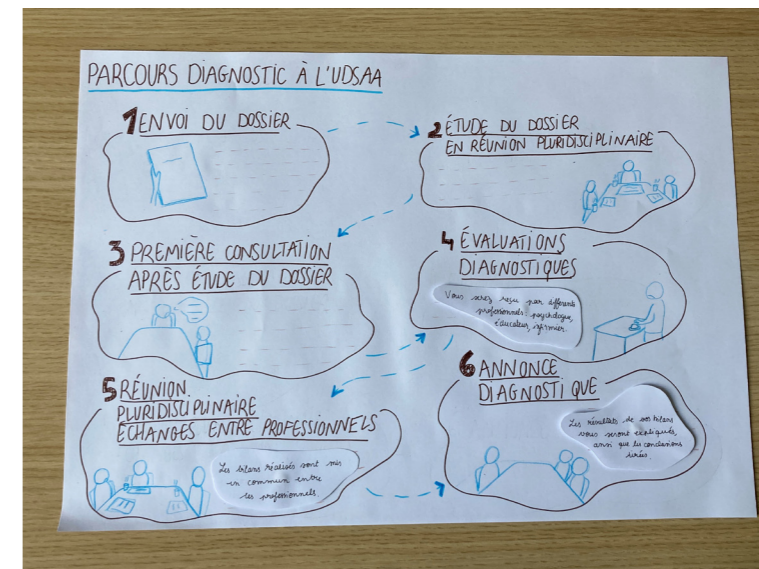 PARCOURS DIAGNOSTIC À L'UDSAA
1 ENVOI DU DOSSIER
2 ÉTUDE DU DOSSIER
EN RÉUNION PLURIDISCIPLINAIRE
3 PREMIÈRE CONSULTATION
APRÈS ÉTUDE DU DOSSIER
4 ÉVALUATIONS
DIAGNOSTIQUES
Vous serez reçu par différents
professionnels: psychologue,
éducateur, infirmier.
5 RÉUNION
PLURIDISCIPLINAIRE
ÉCHANGES ENTRE PROFESSIONNELS
Les bilans réalisés sont mis
en commun entre
les professionnels.
6 ANNONCE
DIAGNOSTIQUE
Les résultats de vos bilans
vous seront expliqués,
ainsi que les conclusions